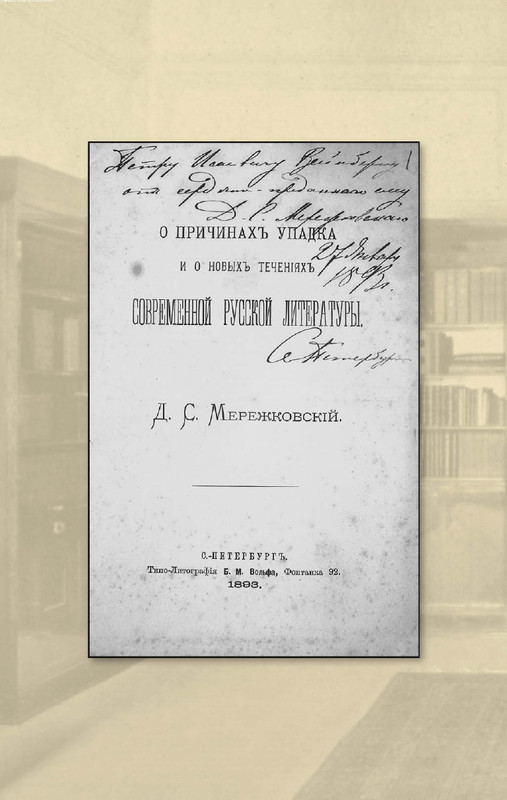 Петру Исаевичу Вейнбергу
отъ сердечно-преданнаго ему
Д. С. Мережковскаго
О ПРИЧИНАХЪ УПАДКА
27 Января
И О НОВЫХЪ ТЕЧЕНІЯХЪ
1893 г.
СОВРЕМЕННОЙ РУССКОЙ ЛИТЕРАТУРЫ.
С. Петербург
Д. С. МЕРЕЖКОВСКІЙ.
С.-ПЕТЕРБУРГЪ.
Типо-Литографія Б. М. Вольфа, Фонтанка 92.
1893.